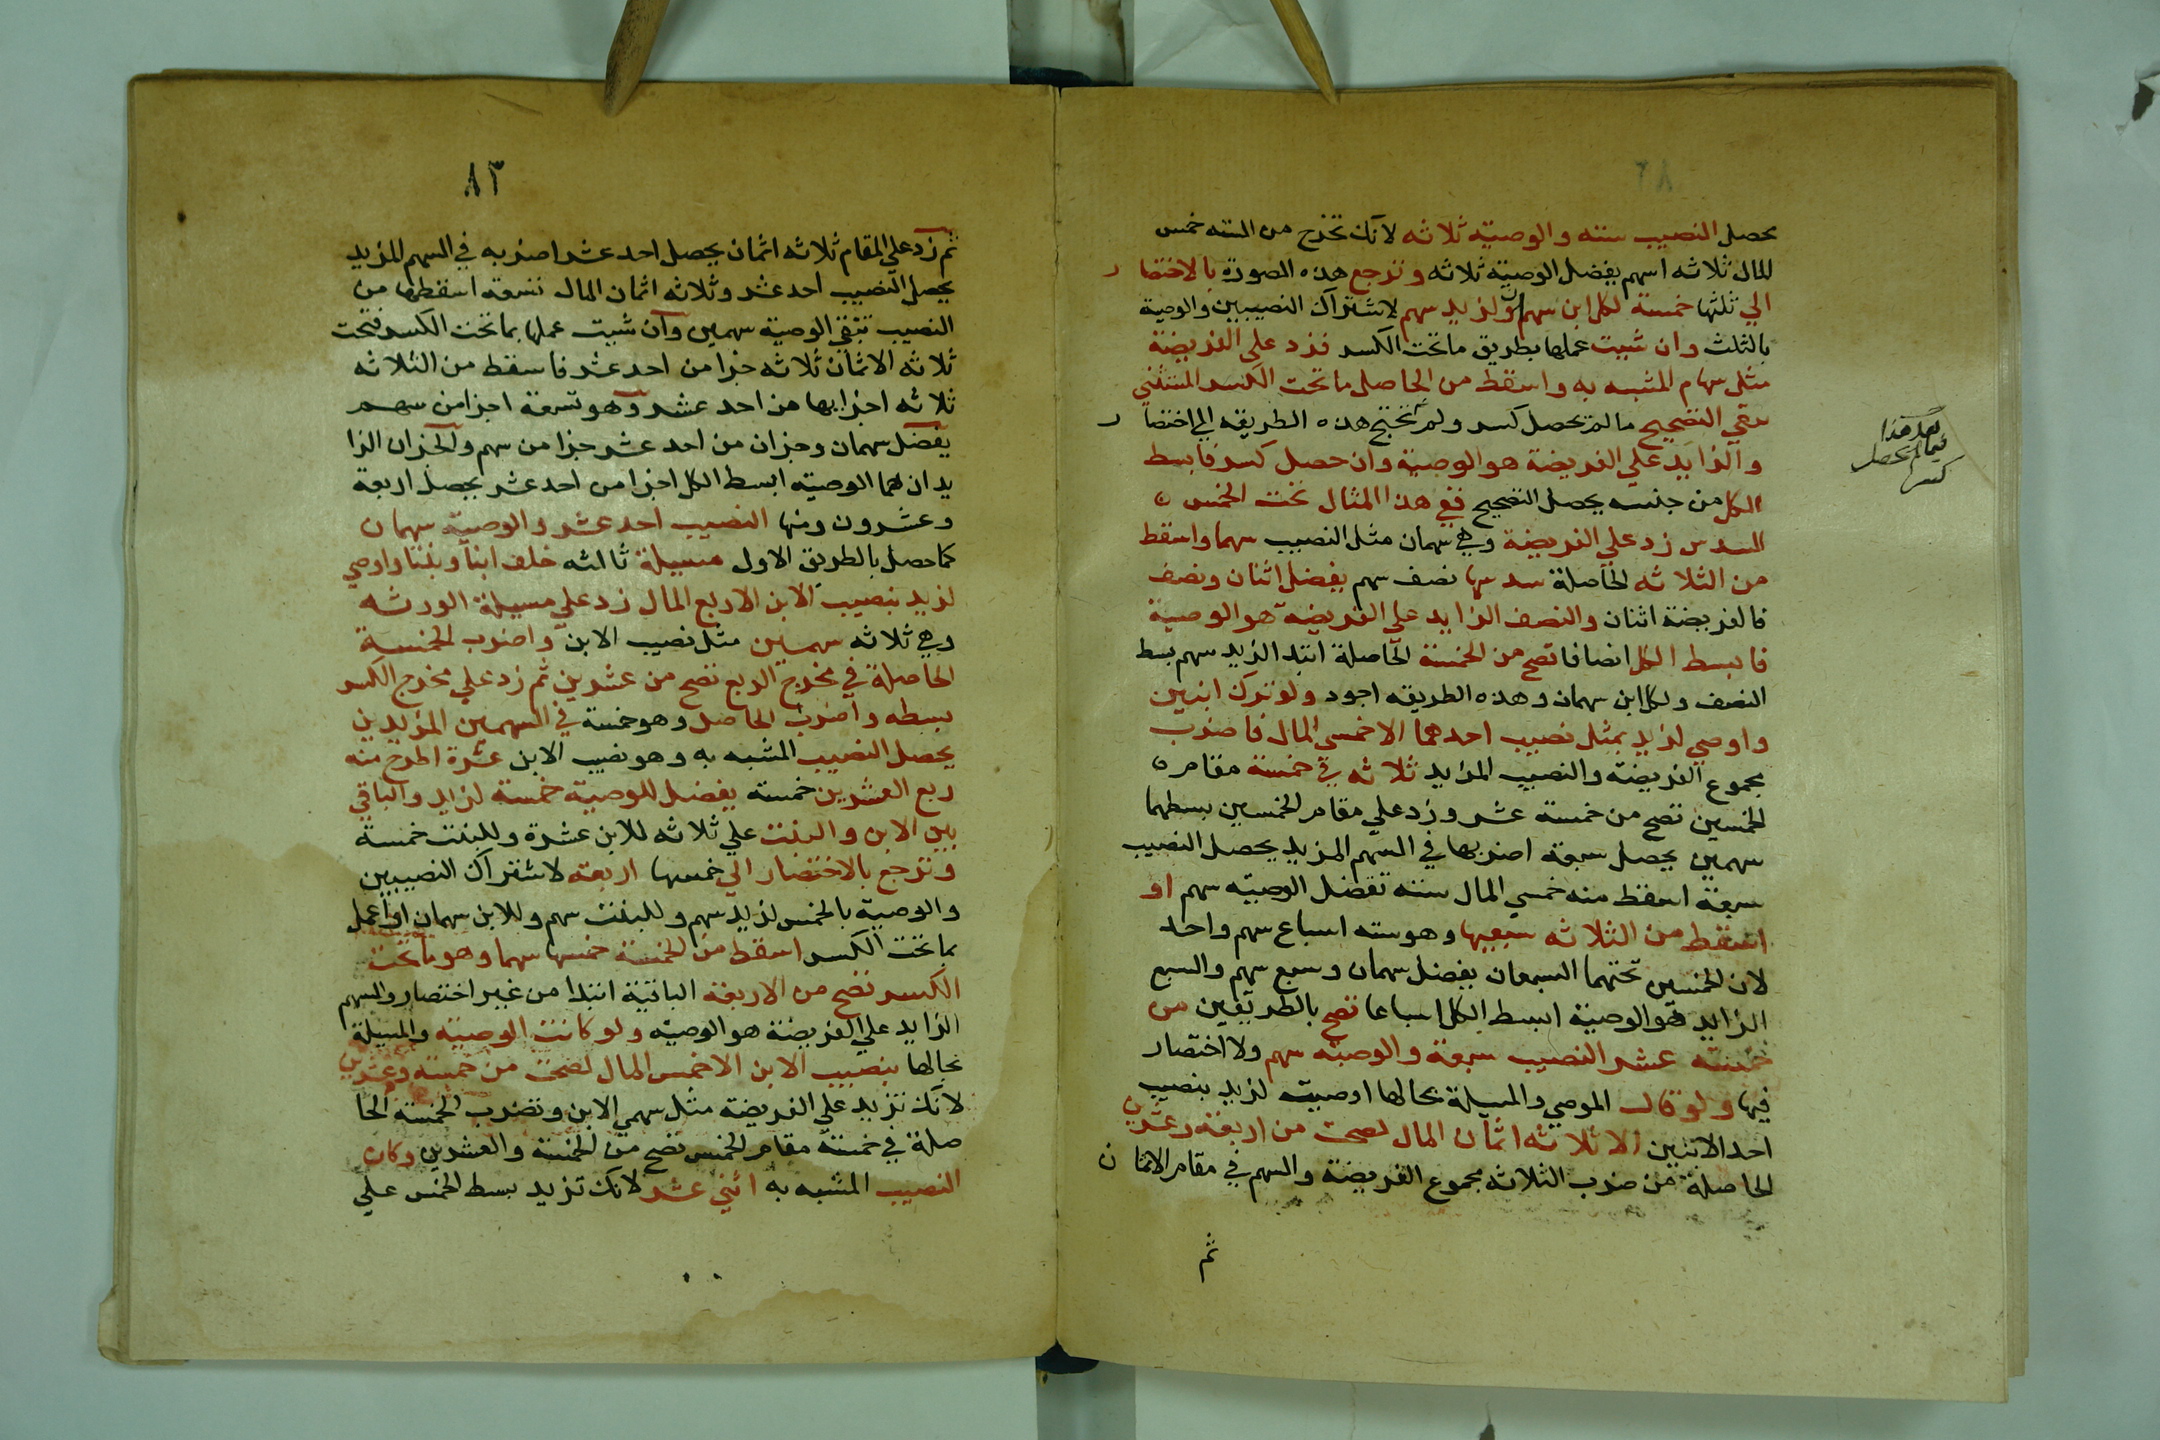 يحصل النصيب ستة والوصية ثلاثه لانك تخرج من الستة خمس
المال ثلاثه اسهم يفضل الوصية ثلاثه وترجع هذه الصورة بالاختصا ر
الي ثلثها خمسة لكل ابن سهمان ولزيد سهم لاشتراك النصيبين والوصية
بالثلث وان شيت عملها بطريق ما تحت الكسر فزد علي الفريضة
مثل سهام المشبه به واسقط من الحاصل ما تحت الكسر المستثني
يبقي التصحيح ما لم تحصل كسر ولم تحتج هذه الطريقه الي اختصا ر
والزايد علي الفريضة هو الوصية وان حصل كسر فابسط
الكل من جنسه يحصل التصحيح ففي هذا المثال تحت الخمس ه
السدس زد علي الفريضة وهي سهمان مثل النصيب سهما واسقط
من الثلاثه الحاصلة سدسها نصف سهم يفضل اثنان ونصف
فالفريضة اثنان والنصف الزايد علي الفريضة هو الوصية
فابسط الكل انصافا تصح من الخمسة الحاصلة ابتدا لزيد سهم بسط
النصف ولكل ابن سهمان وهذه الطريقه اجود ولو ترك ابنين
واوصي لزيد بمثل نصيب احدهما الا خمسي المال فاضرب
مجموع الفريضة والنصيب المزيد ثلاثه في خمسة مقام ه
الخمسين تصح من خمسة عشر وزد علي مقام الخمسين بسطهما
سهمين يحصل سبعة اضربها في السهم المزيد يحصل النصيب
سبعة اسقط منه خمسي المال ستة تفضل الوصيه سهم او
اسقط من الثلاثه سبعيها وهو سته اسباع سهم واحد
لان الخمسين تحتهما السبعان يفضل سهمان وسبع سهم والسبع
الزايد هو الوصية ابسط الكل اسباعا تصح بالطريقين من
خمسة عشر النصيب سبعة والوصية سهم ولا اختصار
فيها ولو قال الموصي والمسيلة بحالها اوصيت لزيد بنصيب
احد الاثنين الا ثلاثه اثمان المال لصحت من اربعة وعشرين
الحاصلة من ضرب الثلاثه مجموع الفريضة والسهم في مقام الاثما ن
ثم
بعد هذا
فيما لم يحصل
كسر
٨٣
ثم زد علي المقام ثلاثه اثمان يحصل احد عشر اضربه في السهم المزيد
يحصل النصيب احد عشر وثلاثه اثمان المال تسعة اسقطها من
النصيب تبقي الوصية سهمين وان شيت عملها بما تحت الكسر فتحت
ثلاثه الاثمان ثلاثه جزا من احد عشر فاسقط من الثلاثه
ثلاثه اجزايها من احد عشر وهو تسعة اجزا من سهم
يفضل سهمان وجزان من احد عشر جزا من سهم والجزان الزا
يدان هما الوصية ابسط الكل اجزا من احد عشر يحصل اربعة
وعشرون ومنها النصيب احد عشر والوصية سهمان
كما حصل بالطريق الاول مسيلة ثالثه خلف ابنا وبنتا واوصي
لزيد بنصيب الابن الا ربع المال زد علي مسيلة الورثه
وهي ثلاثه سهمين مثل نصيب الابن واضرب الخمسة
الحاصلة في مخرج الربع تصح من عشرين ثم زد علي مخرج الكسر
بسطه واضرب الحاصل وهو خمسة في السهمين المزيدين
يحصل النصيب المشبه به وهو نصيب الابن عشرة اطرح منه
ربع العشرين خمسة يفضل للوصية خمسة لزيد والباقي
بين الابن والبنت علي ثلاثه للابن عشرة وللبنت خمسة
وترجع بالاختصار الي خمسها اربعة لاشتراك النصيبين
والوصية بالخمس لزيد سهم وللبنت سهم وللابن سهمان او اعمل
بما تحت الكسر اسقط من الخمسة خمسها سهما وهو ما تحت
الكسر تصح من الاربعة الباقية ابتدا من غير اختصار والسهم
الزايد علي الفريضة هو الوصية ولو كانت الوصية والمسيلة
بحالها بنصيب الابن الا خمس المال لصحت من خمسة وعشرين
لانك تزيد علي الفريضة مثل سهمي الابن وتضرب الخمسة الحا
صلة في خمسة مقام الخمس تصح من الخمسة والعشرين وكان
النصيب المشبه به اثني عشر لانك تزيد بسط الخمس علي